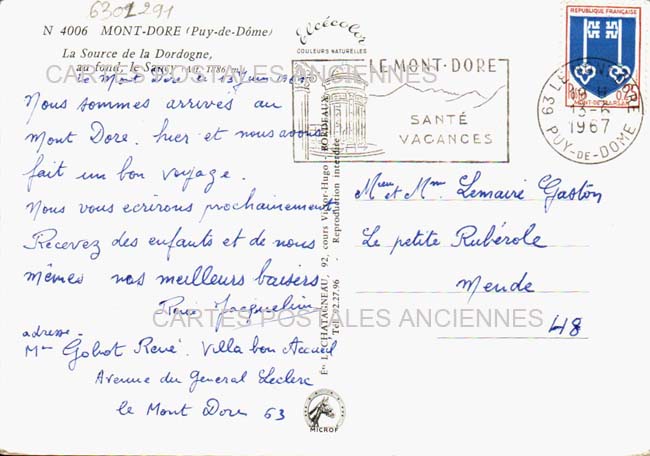 6301291
N 4006 MONT-DORE (Puy-de-Dôme)
La Source de la Dordogne,
au fond, le Sancy (Alt. 1886 m)
Elcécolor
COULEURS NATURELLES
le Mont Dore le 13 Juin 1967
Nous sommes arrivés au
Mont Dore. hier et nous avons
fait un bon voyage.
Nous vous ecrirons prochainement
Recevez des enfants et de nous
mêmes nos meilleurs baisers
René Jacqueline
adresse.
Mme Gobot René. Villa bon Accueil
Avenue du General Leclerc
le Mont Dore 63
Éts LECHATAGNEAU, 92, cours Victor-Hugo - BORDEAUX
Reproduction interdite
MICROF
LE MONT-DORE
SANTÉ
VACANCES
RÉPUBLIQUE FRANÇAISE
MONT-DE-MARSAN
63 LE MONT DORE
13-6
1967
PUY-DE-DOME
Mieur et Mme Lemaire Gaston
Le petite Rubérole
Mende
48
CARTES POSTALES ANCIENNES
CARTES POSTALES ANCIENNES